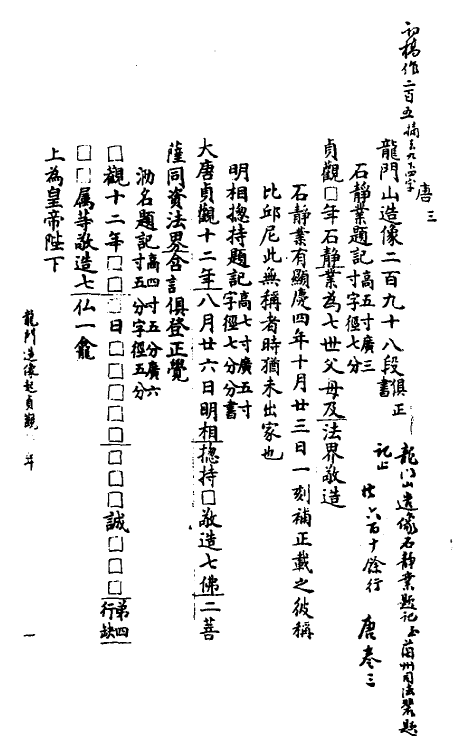 龍門山造像石靜業題記至蘭州司法題
記止 共六百十餘行 唐卷三
初稿作二百五
唐三
龍門山造像二百九十八段俱正書
石靜業題記高五寸廣三寸字徑七分
貞觀□年石靜業為七世父母及法界敬造
石靜業有顯慶四年十月廿三日一刻補正載之彼稱
比邱尼此無稱者時猶未出家也
明相揔持題記高七寸廣五寸字徑七分分書
大唐貞觀十二年八月廿六日明相揔持□敬造七佛二菩
薩同資法界含言俱登正覺
泐名題記高四寸五分廣六寸五分字徑五分
□觀十二年□□日□□□□□□□誠□□□第四行缺
□□屬等敬造七仏一龕
上為皇帝陛下
龍門造像起貞觀 年
一